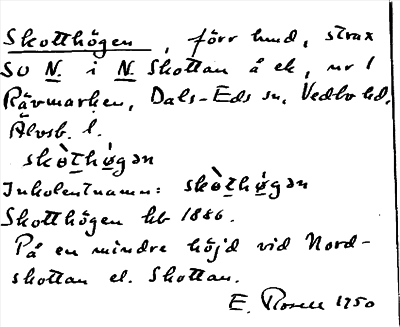 Skotthögen, förr lund, strax
SO N. i N. Skottan å ek, nr 1
Rävmarken, Dals-Eds sn, Vedbo hd,
Älvsb. l.
skò̱thö̀gən
Inkolentnamn: skò̱thö̀gən
Skotthögen hb 1886.
På en mindre höjd vid Nord-
skottan el. Skottan.
E. Rosell 1950